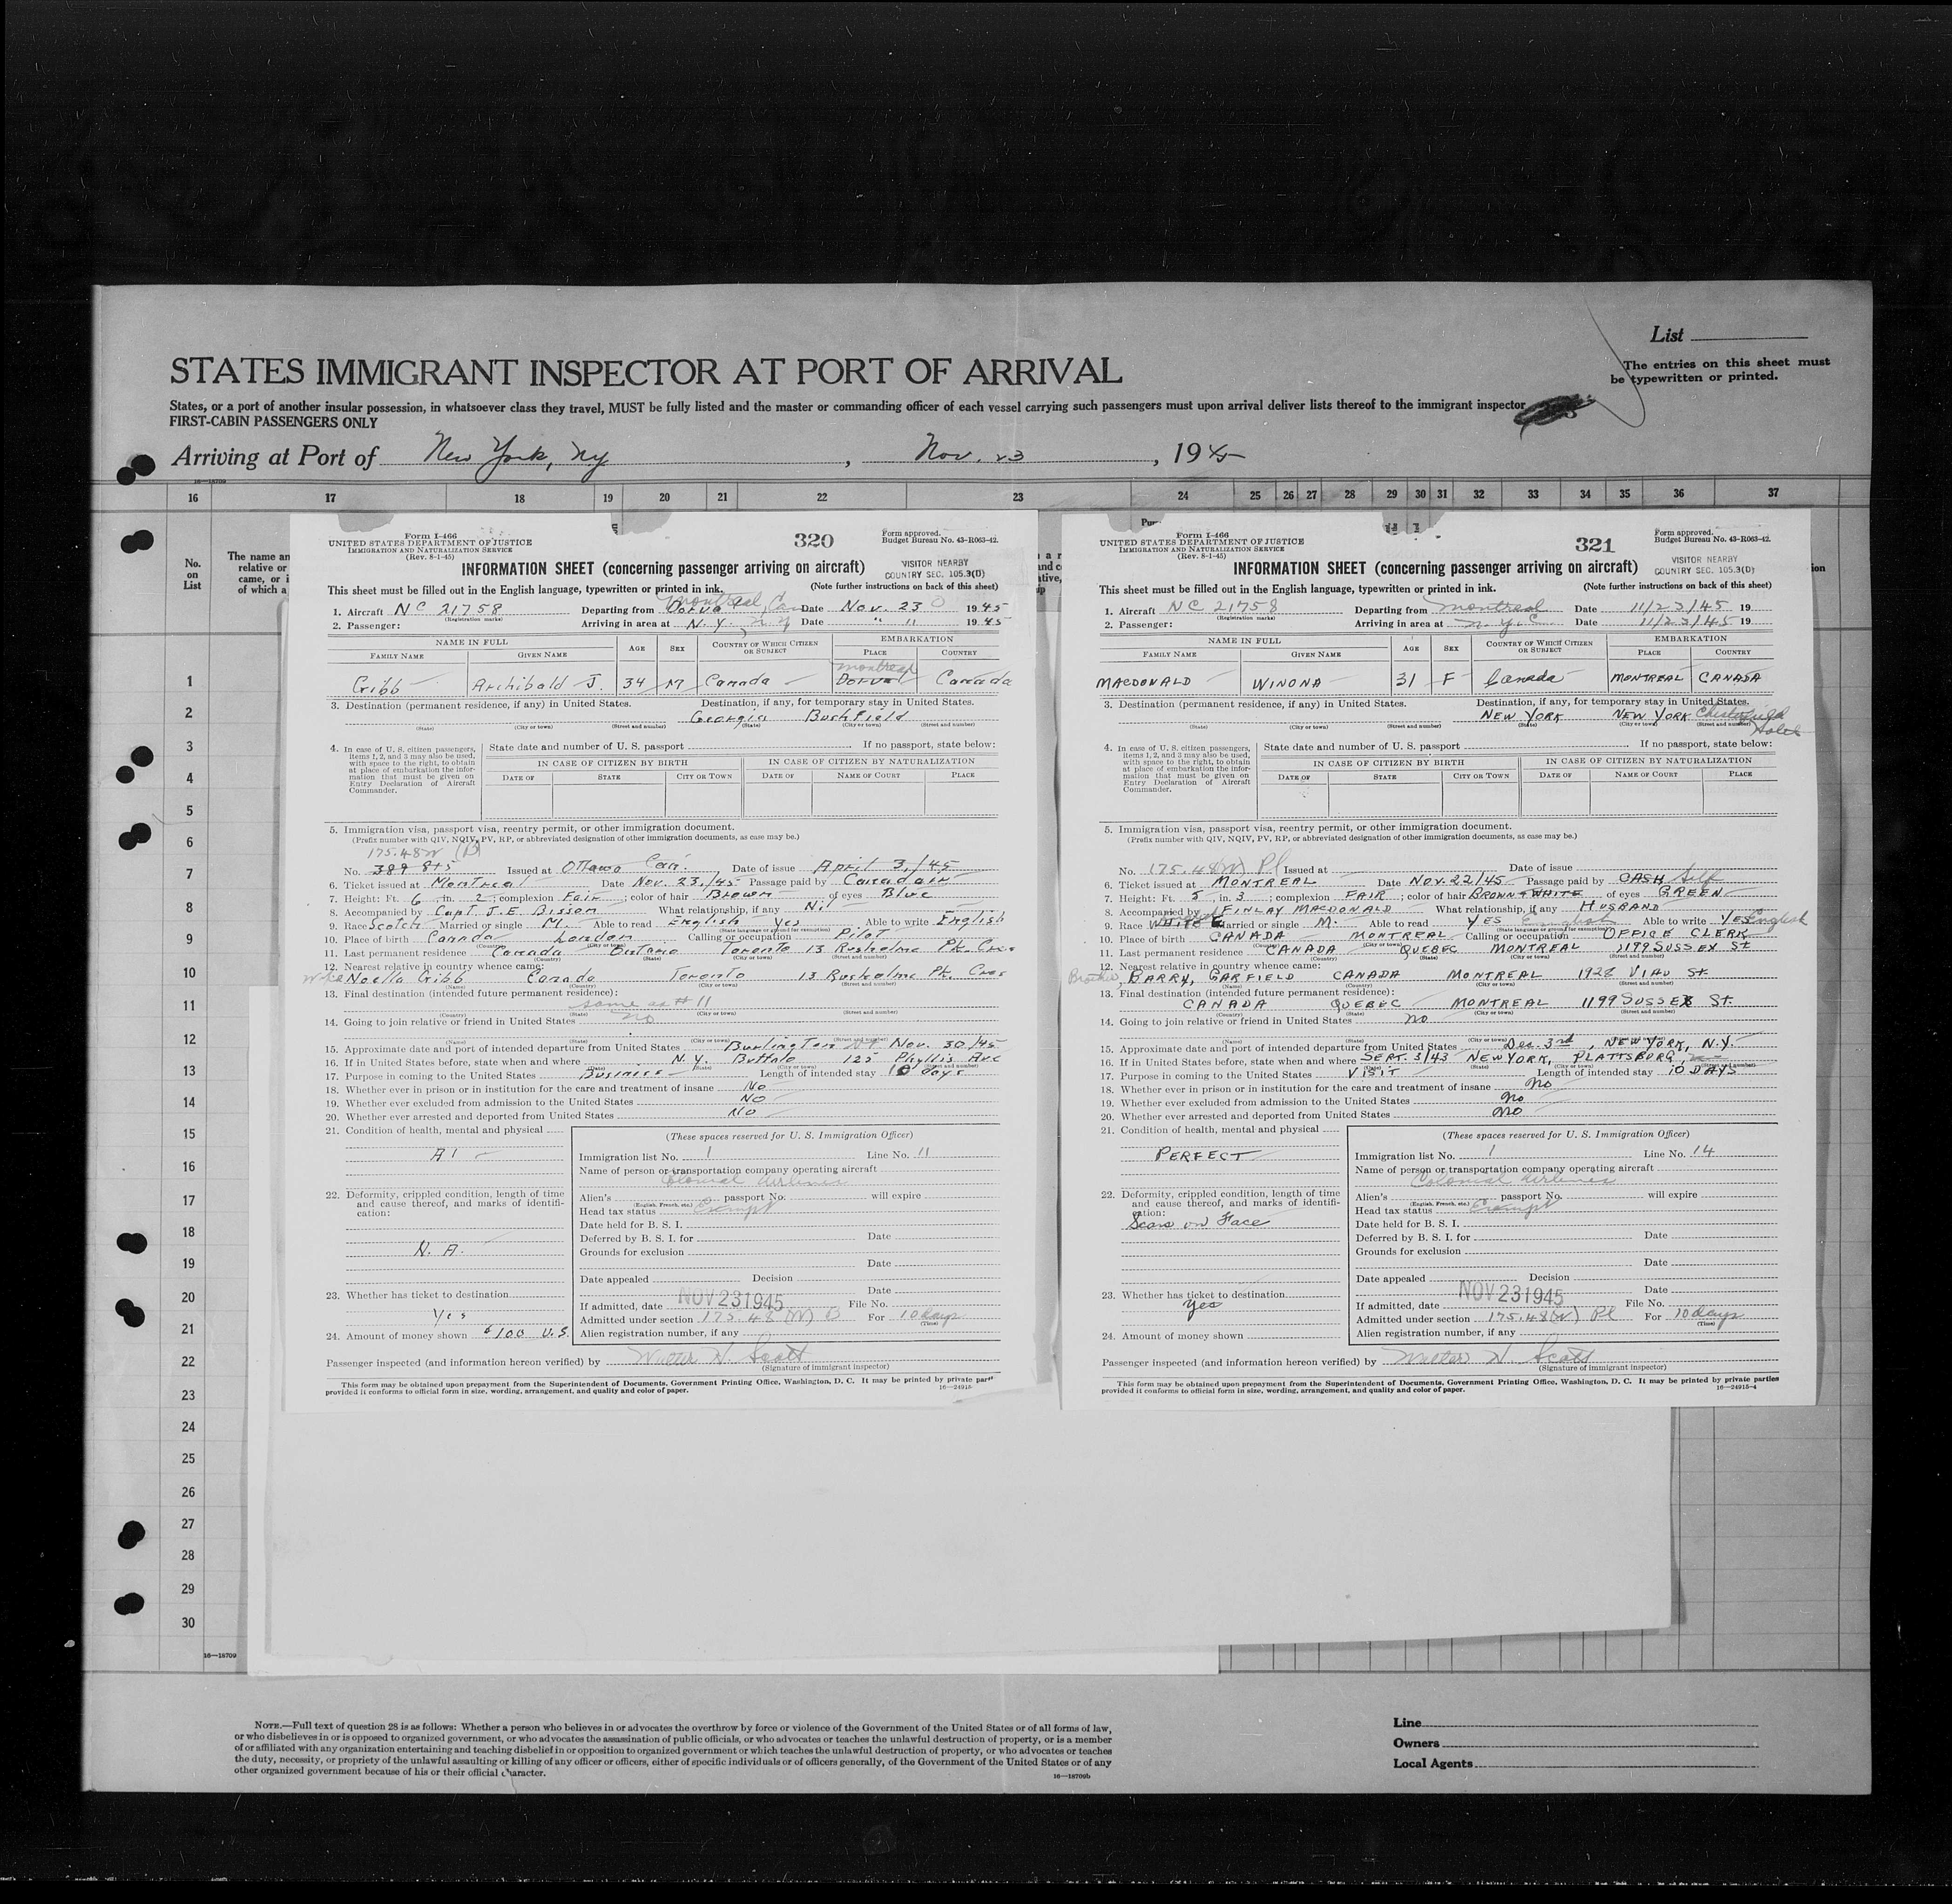 List
The entries on this sheet must
be typewritten or printed.
STATES IMMIGRANT INSPECTOR AT PORT OF ARRIVAL
States, or a port of another insular possession, in whatsoever class they travel, MUST be fully listed and the master or commanding officer of each vessel carrying such passengers must upon arrival deliver lists thereof to the immigrant inspector
FIRST-CABIN PASSENGERS ONLY
Arriving at Port of New York, Ny , Nov. 23 , 1945
16—18709
16 17 18 19 20 21 22 23 24 25 26 27 28 29 30 31 32 33 34 35 36 37
No.
on
List
The name an
relative or
came, or i
of which a
1
2
3
4
5
6
7
8
9
10
11
12
13
14
15
16
17
18
19
20
21
22
23
24
25
26
27
28
29
30
16—18709
Form I-466
UNITED STATES DEPARTMENT OF JUSTICE
IMMIGRATION AND NATURALIZATION SERVICE
(Rev. 8-1-45)
320
Form approved.
Budget Bureau No. 43-R063-42.
VISITOR NEARBY
COUNTRY SEC. 105.3(D)
INFORMATION SHEET (concerning passenger arriving on aircraft)
This sheet must be filled out in the English language, typewritten or printed in ink. (Note further instructions on back of this sheet)
1. Aircraft NC 21758 Departing from Dorval Montreal, Can Date Nov. 23 1945
(Registration marks)
2. Passenger: Arriving in area at N.Y. N.Y Date " 11 1945
NAME IN FULL AGE SEX COUNTRY OF WHICH CITIZEN OR SUBJECT EMBARKATION
FAMILY NAME GIVEN NAME PLACE COUNTRY
Gibb Archibald J. 34 M Canada Montreal Dorval Canada
3. Destination (permanent residence, if any) in United States. Destination, if any, for temporary stay in United States.
Georgia Bushfield
(State) (City or town) (Street and number) (State) (City or town) (Street and number)
4. In case of U. S. citizen passengers, items 1, 2, and 3 may also be used, with space to the right, to obtain at place of embarkation the information that must be given on Entry Declaration of Aircraft Commander.
State date and number of U. S. passport If no passport, state below:
IN CASE OF CITIZEN BY BIRTH IN CASE OF CITIZEN BY NATURALIZATION
DATE OF STATE CITY OR TOWN DATE OF NAME OF COURT PLACE
5. Immigration visa, passport visa, reentry permit, or other immigration document.
(Prefix number with QIV, NQIV, PV, RP, or abbreviated designation of other immigration documents, as case may be.)
175.48W (B)
No. 389 845 Issued at Ottawa Can. Date of issue April 3,/45
6. Ticket issued at Montreal Date Nov. 23,/45 Passage paid by Canadair
7. Height: Ft. 6 in. 2; complexion Fair; color of hair Brown of eyes Blue
8. Accompanied by Capt. J.E. Bisson What relationship, if any Nil
9. Race Scotch Married or single M. Able to read English Yes Able to write English
(State language or ground for exemption)
10. Place of birth Canada London Calling or occupation Pilot
(Country) (City or town)
11. Last permanent residence Canada Ontario Toronto 13 Rusholme Pk. Cres
(Country) (State) (City or town) (Street and number)
12. Nearest relative in country whence came:
Wife Noella Gibb Canada Toronto 13 Rusholme Pk. Cres
(Name) (Country) (City or town) (Street and number)
13. Final destination (intended future permanent residence):
same as # 11
(Country) (State) (City or town) (Street and number)
14. Going to join relative or friend in United States no
(Name) (State) (City or town) (Street and number)
15. Approximate date and port of intended departure from United States Burlington Vt Nov. 30,/45
16. If in United States before, state when and where N.Y. Buffalo 125 Phyllis Ave
(Date) (State) (City or town) (Street and number)
17. Purpose in coming to the United States Business Length of intended stay 10 days
18. Whether ever in prison or in institution for the care and treatment of insane No
19. Whether ever excluded from admission to the United States No
20. Whether ever arrested and deported from United States No
21. Condition of health, mental and physical
A1
22. Deformity, crippled condition, length of time and cause thereof, and marks of identification:
N. A.
23. Whether has ticket to destination
Yes
24. Amount of money shown $100 U.S.
(These spaces reserved for U. S. Immigration Officer)
Immigration list No. 1 Line No. 11
Name of person or transportation company operating aircraft
Colonial Airlines
Alien's passport No. will expire
(English, French, etc.)
Head tax status Exempt
Date held for B. S. I.
Deferred by B. S. I. for Date
Grounds for exclusion
Date
Date appealed Decision
Date
If admitted, date NOV 23 1945 File No.
Admitted under section 175.48 (W) B For 10 days
(Time)
Alien registration number, if any
Passenger inspected (and information hereon verified) by Walter N. Scott
(Signature of immigrant inspector)
This form may be obtained upon prepayment from the Superintendent of Documents, Government Printing Office, Washington, D. C. It may be printed by private part
provided it conforms to official form in size, wording, arrangement, and quality and color of paper. 16—24915
Form I-466
UNITED STATES DEPARTMENT OF JUSTICE
IMMIGRATION AND NATURALIZATION SERVICE
(Rev. 8-1-45)
321
Form approved.
Budget Bureau No. 43-R063-42.
VISITOR NEARBY
COUNTRY SEC. 105.3(D)
INFORMATION SHEET (concerning passenger arriving on aircraft)
This sheet must be filled out in the English language, typewritten or printed in ink. (Note further instructions on back of this sheet)
1. Aircraft NC 21758 Departing from Montreal Date 11/23/45 19
(Registration marks)
2. Passenger: Arriving in area at N.Y.C. Date 11/23/45 19
NAME IN FULL AGE SEX COUNTRY OF WHICH CITIZEN OR SUBJECT EMBARKATION
FAMILY NAME GIVEN NAME PLACE COUNTRY
MACDONALD WINONA 31 F Canada MONTREAL CANADA
3. Destination (permanent residence, if any) in United States. Destination, if any, for temporary stay in United States.
NEW YORK NEW YORK Chesterfield Hotel
(State) (City or town) (Street and number) (State) (City or town) (Street and number)
4. In case of U. S. citizen passengers, items 1, 2, and 3 may also be used, with space to the right, to obtain at place of embarkation the information that must be given on Entry Declaration of Aircraft Commander.
State date and number of U. S. passport If no passport, state below:
IN CASE OF CITIZEN BY BIRTH IN CASE OF CITIZEN BY NATURALIZATION
DATE OF STATE CITY OR TOWN DATE OF NAME OF COURT PLACE
5. Immigration visa, passport visa, reentry permit, or other immigration document.
(Prefix number with QIV, NQIV, PV, RP, or abbreviated designation of other immigration documents, as case may be.)
No. 175.48(W) Pl Issued at Date of issue
6. Ticket issued at MONTREAL Date NOV. 22/45 Passage paid by CASH Self
7. Height: Ft. 5, in. 3; complexion FAIR; color of hair BROWN & WHITE of eyes GREEN
8. Accompanied by FINLAY MACDONALD What relationship, if any HUSBAND
9. Race WHITE Married or single M. Able to read YES English Able to write YES English
(State language or ground for exemption)
10. Place of birth CANADA MONTREAL Calling or occupation OFFICE CLERK
(Country) (City or town)
11. Last permanent residence CANADA QUEBEC MONTREAL 1199 SUSSEX St
(Country) (State) (City or town) (Street and number)
12. Nearest relative in country whence came:
Brother, BARRY, GARFIELD CANADA MONTREAL 1928 VIAU St
(Name) (Country) (City or town) (Street and number)
13. Final destination (intended future permanent residence):
CANADA QUEBEC MONTREAL 1199 SUSSEX St
(Country) (State) (City or town) (Street and number)
14. Going to join relative or friend in United States no
(Name) (State) (City or town) (Street and number)
15. Approximate date and port of intended departure from United States Dec. 3rd, NEW YORK, N.Y.
16. If in United States before, state when and where SEPT. 3/43 NEW YORK, PLATTSBURG
(Date) (State) (City or town) (Street and number)
17. Purpose in coming to the United States VISIT Length of intended stay 10 DAYS
18. Whether ever in prison or in institution for the care and treatment of insane no
19. Whether ever excluded from admission to the United States no
20. Whether ever arrested and deported from United States no
21. Condition of health, mental and physical
PERFECT
22. Deformity, crippled condition, length of time and cause thereof, and marks of identification:
Scars on Face
23. Whether has ticket to destination
Yes
24. Amount of money shown
(These spaces reserved for U. S. Immigration Officer)
Immigration list No. 1 Line No. 14
Name of person or transportation company operating aircraft
Colonial Airlines
Alien's passport No. will expire
(English, French, etc.)
Head tax status Exempt
Date held for B. S. I.
Deferred by B. S. I. for Date
Grounds for exclusion
Date
Date appealed Decision
Date
If admitted, date NOV 23 1945 File No.
Admitted under section 175.48(W) Pl For 10 days
(Time)
Alien registration number, if any
Passenger inspected (and information hereon verified) by Walter N. Scott
(Signature of immigrant inspector)
This form may be obtained upon prepayment from the Superintendent of Documents, Government Printing Office, Washington, D. C. It may be printed by private parties
provided it conforms to official form in size, wording, arrangement, and quality and color of paper. 16—24915-4
NOTE.—Full text of question 28 is as follows: Whether a person who believes in or advocates the overthrow by force or violence of the Government of the United States or of all forms of law,
or who disbelieves in or is opposed to organized government, or who advocates the assassination of public officials, or who advocates or teaches the unlawful destruction of property, or is a member
of or affiliated with any organization entertaining and teaching disbelief in or opposition to organized government or which teaches the unlawful destruction of property, or who advocates or teaches
the duty, necessity, or propriety of the unlawful assaulting or killing of any officer or officers, either of specific individuals or of officers generally, of the Government of the United States or of any
other organized government because of his or their official character.
16—18709b
Line
Owners
Local Agents